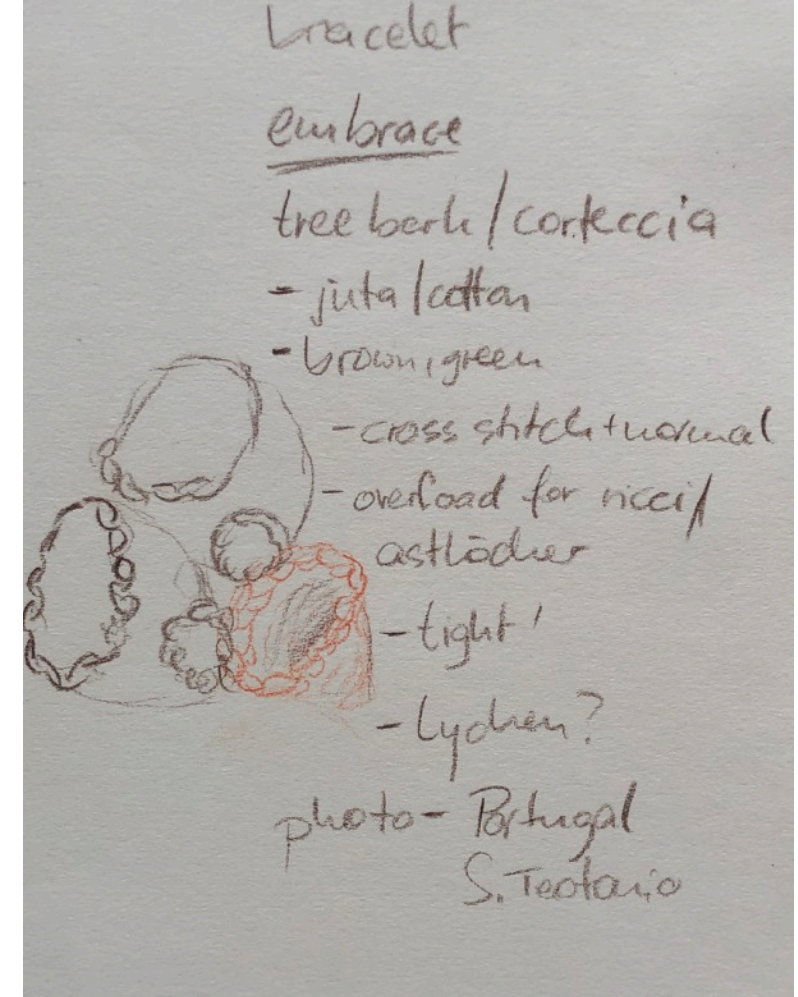 bracelet
embrace
tree bark/corteccia
- juta/cotton
- brown, green
- cross stitch + normal
- overload for ricci/
astlöcher
- tight!
- Lychen?
photo - Portugal
S. Teotonio